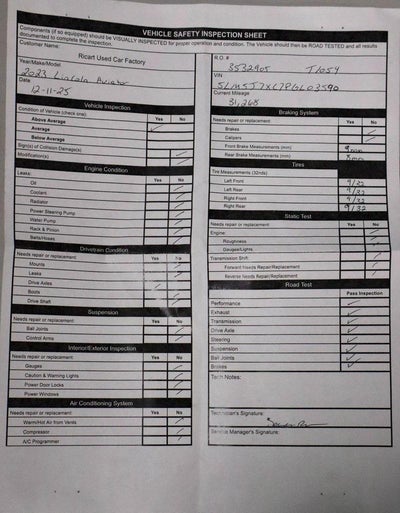 VEHICLE SAFETY INSPECTION SHEET
Components (if so equipped) should be VISUALLY INSPECTED for proper operation and condition. The Vehicle should then be ROAD TESTED and all results
documented to complete the inspection.
Customer Name:
Ricart Used Car Factory
Year/Make/Model:
2023 Lincoln Aviator
Date
12-11-25
Vehicle Inspection
Condition of Vehicle (check one): Yes No
Above Average
Average
Below Average
Sign(s) of Collision Damage(s)
Modification(s)
Engine Condition
Leaks: Yes No
Oil
Coolant
Radiator
Power Steering Pump
Water Pump
Rack & Pinion
Belts/Hoses
Drivetrain Condition
Needs repair or replacement: Yes No
Mounts
Leaks
Drive Axles
Boots
Drive Shaft
Suspension
Needs repair or replacement: Yes No
Ball Joints
Control Arms
Interior/Exterior Inspection
Needs repair or replacement: Yes No
Gauges
Caution & Warning Lights
Power Door Locks
Power Windows
Air Conditioning System
Needs repair or replacement: Yes No
Warm/Hot Air from Vents
Compressor
A/C Programmer
R.O. #
3532905 T1054
VIN
5LM5J7XC7PGL03590
Current Mileage
31,265
Braking System
Needs repair or replacement: Yes No
Brakes
Calipers
Front Brake Measurements (mm) 9mm
Rear Brake Measurements (mm) 8mm
Tires
Tire Measurements (32nds)
Left Front 9/32
Left Rear 9/32
Right Front 9/32
Right Rear 9/32
Static Test
Needs repair or replacement: Yes No
Engine:
Roughness
Gauges/Lights
Transmission Shift:
Forward Needs Repair/Replacement
Reverse Needs Repair/Replacement
Road Test
Pass Inspection
Performance
Exhaust
Transmission
Drive Axle
Steering
Suspension
Ball Joints
Brakes
Tech Notes:
Technician's Signature:
Service Manager's Signature: